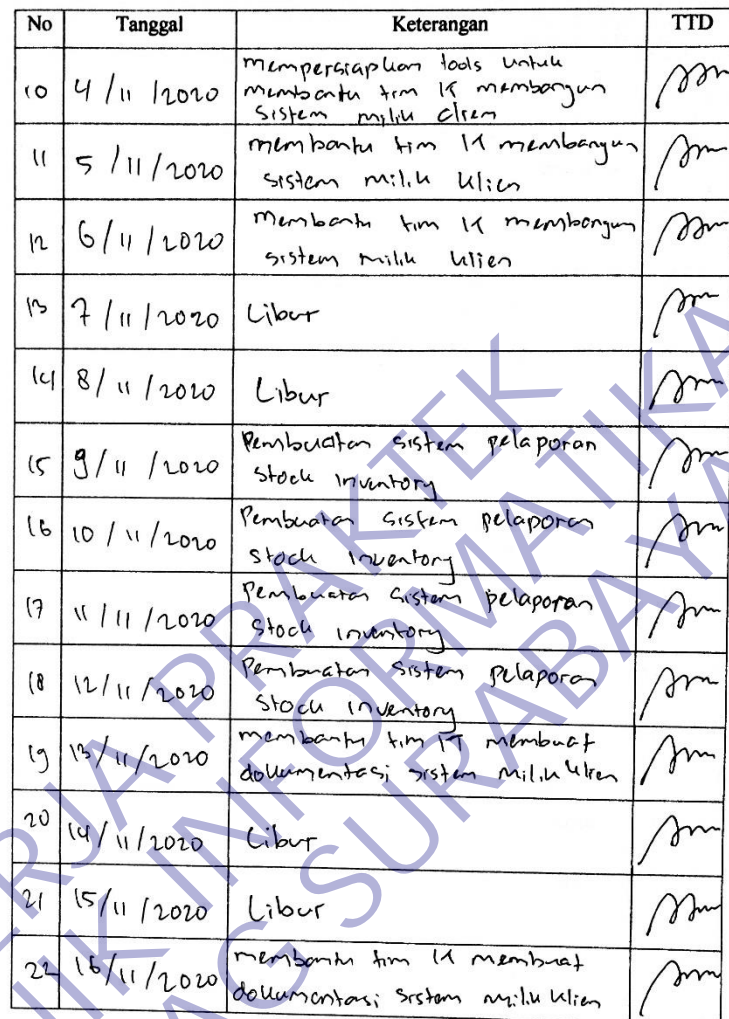 No Tanggal Keterangan TTD
10 4/11/2020 mempersiapkan tools untuk
membantu tim IT membangun
sistem milik clien
11 5/11/2020 membantu tim IT membangun
sistem milik klien
12 6/11/2020 membantu tim IT membangun
sistem milik klien
13 7/11/2020 Libur
14 8/11/2020 Libur
15 9/11/2020 Pembuatan sistem pelaporan
stock inventory
16 10/11/2020 Pembuatan sistem pelaporan
stock inventory
17 11/11/2020 Pembuatan sistem pelaporan
stock inventory
18 12/11/2020 Pembuatan sistem pelaporan
stock inventory
19 13/11/2020 membantu tim IT membuat
dokumentasi sistem milik klien
20 14/11/2020 Libur
21 15/11/2020 Libur
22 16/11/2020 membantu tim IT membuat
dokumentasi sistem milik klien
ERJA PRAKTEK
NIK INFORMATIKA
AG SURABAYA